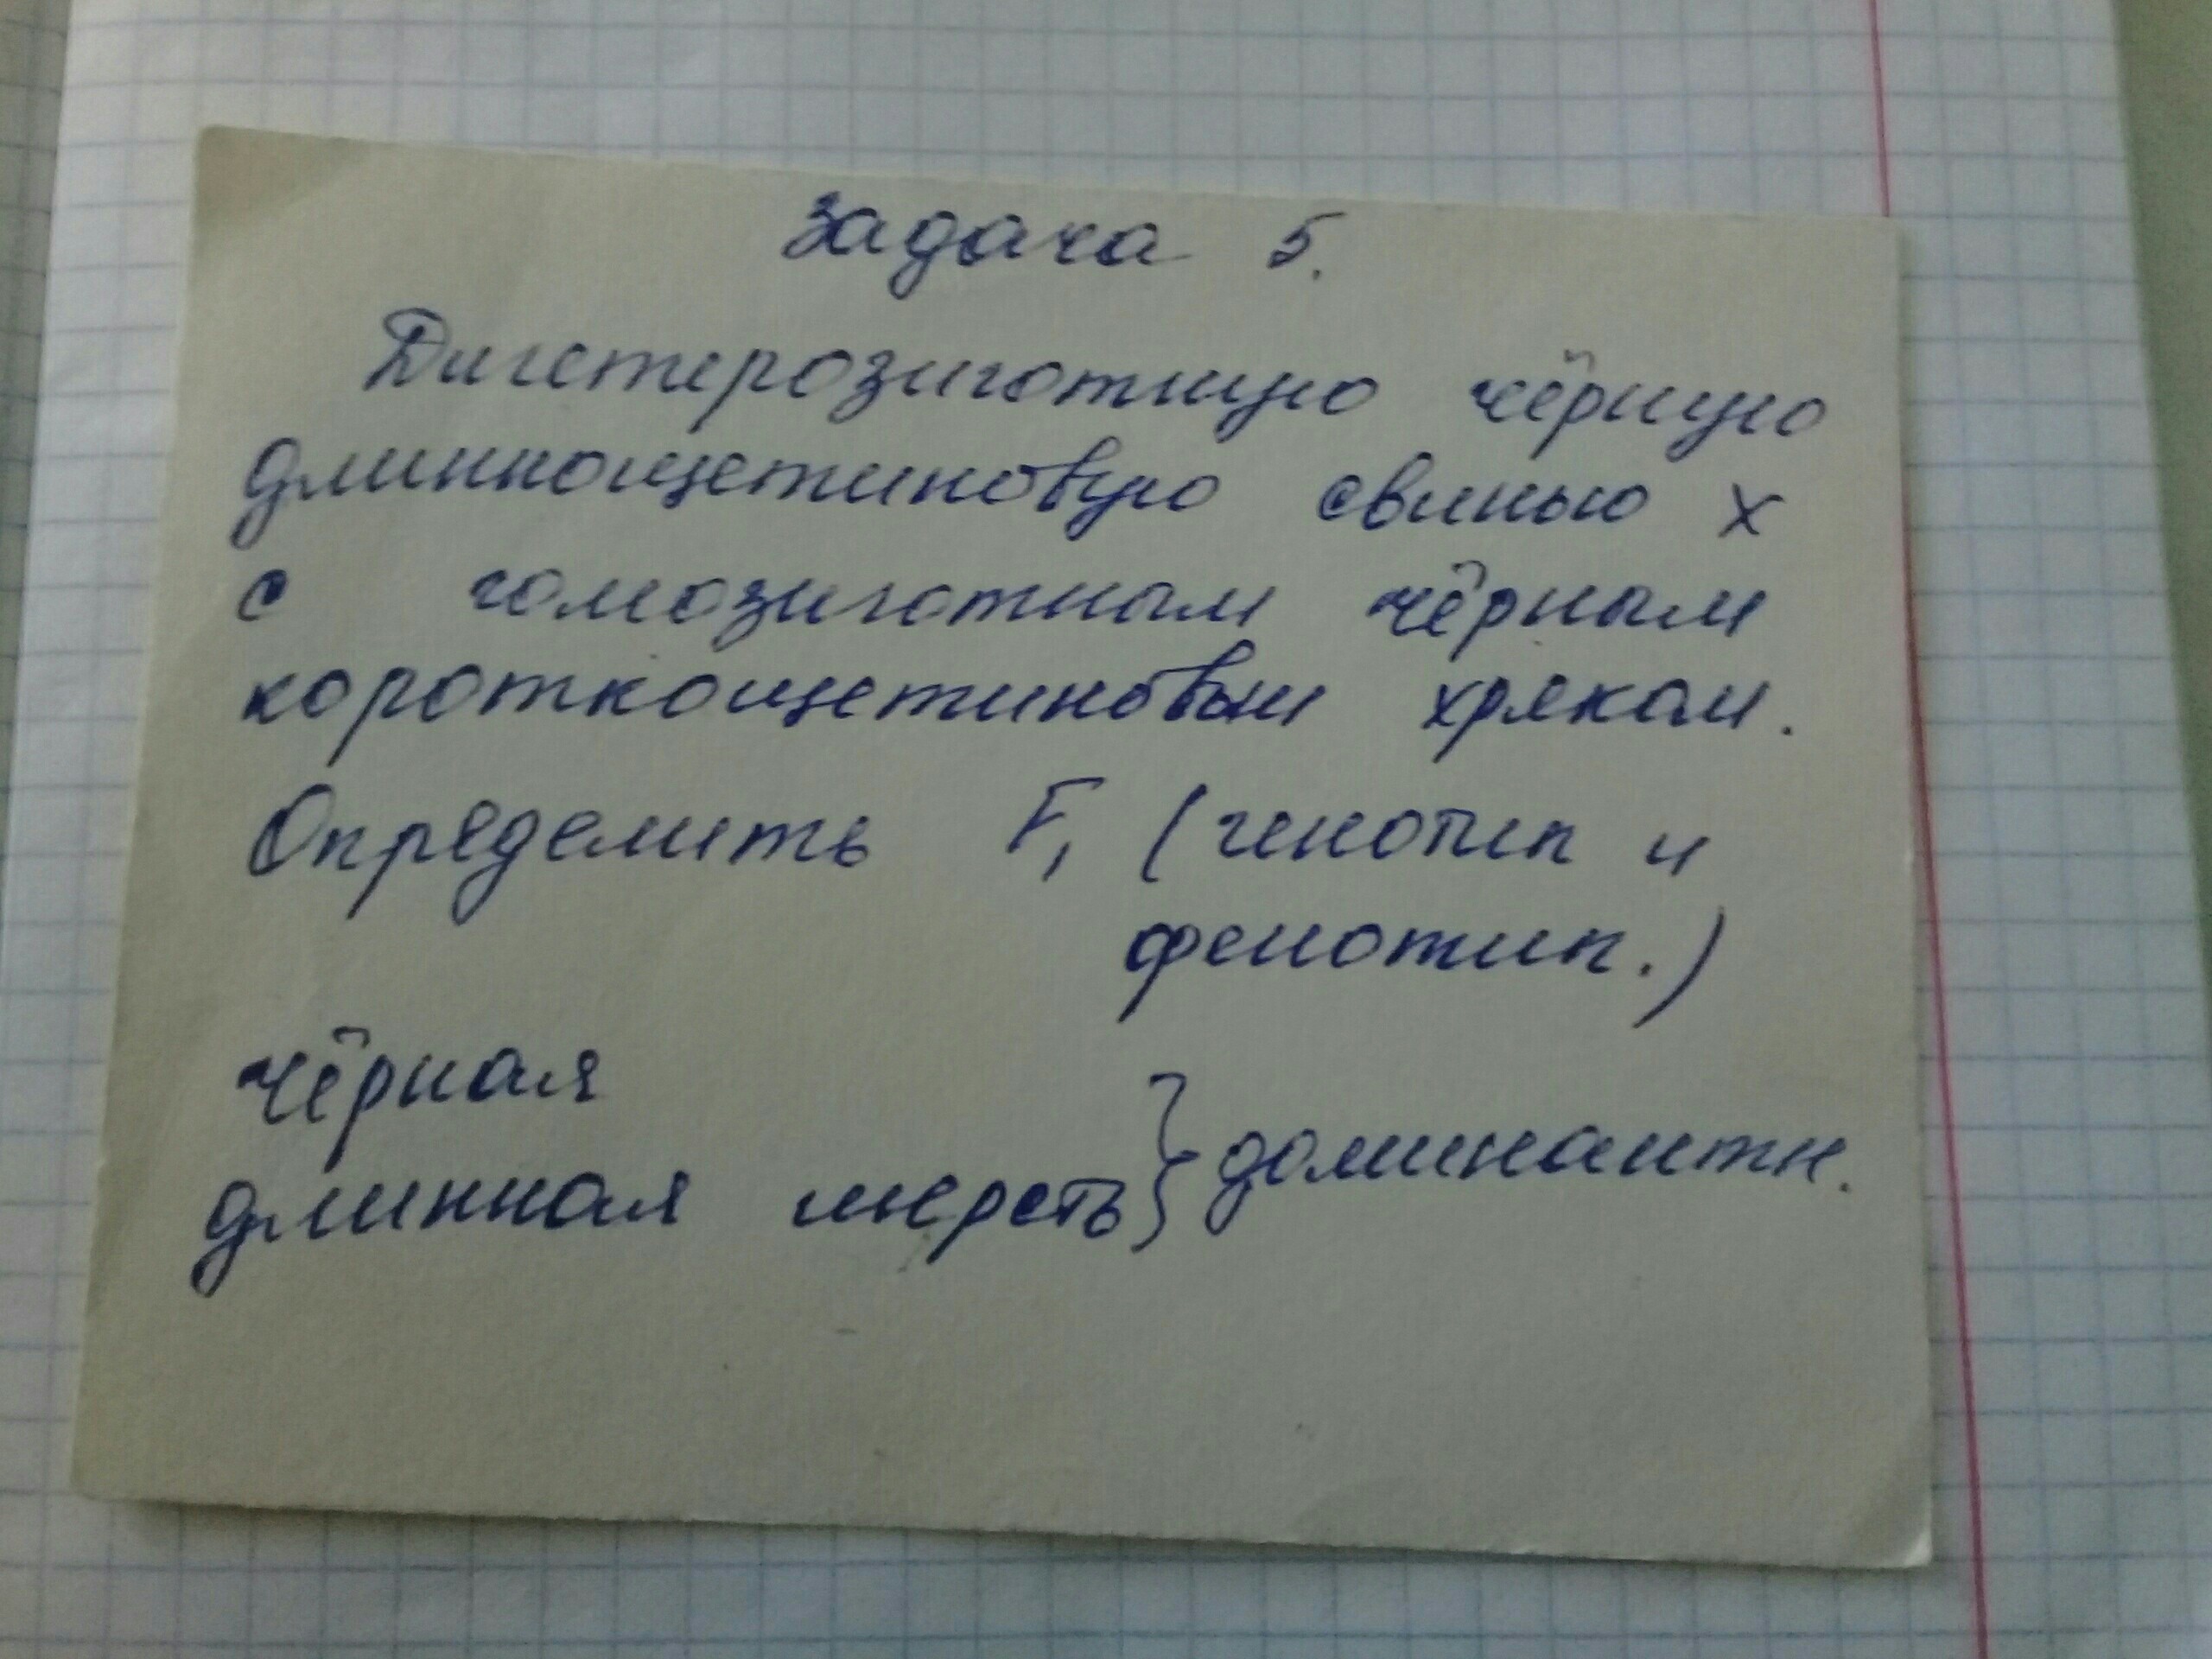 Задача 5.
Дигетерозиготную чёрную
длиннощетиновую свинью х
с гомозиготным чёрным
короткощетиновым хряком.
Определить F₁ (генотип и
фенотип.)
чёрная
длинная шерсть } доминантн.